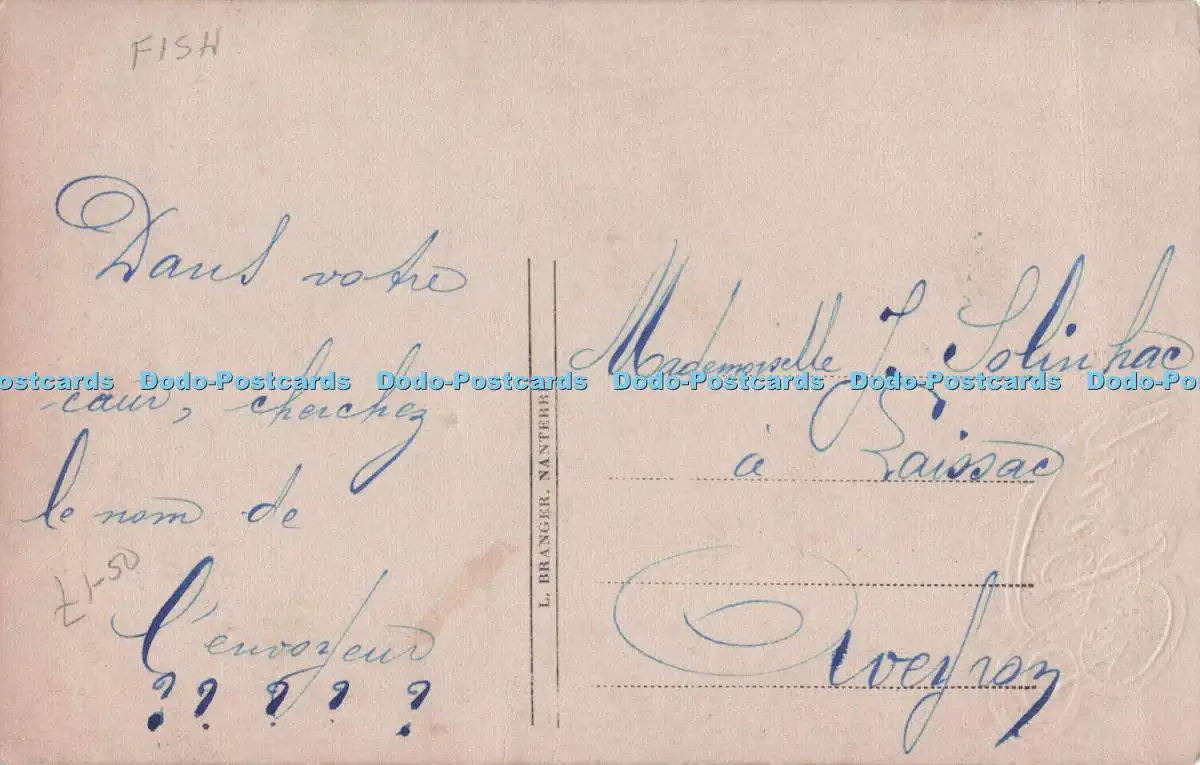 FISH
Dans votre
cœur, cherchez
le nom de
l'envoyeur
? ? ? ? ?
£1-50
L. BRANGER. NANTERRE
Mademoiselle J. Solinhac
à Laissac
Aveyron
Dodo-Postcards Dodo-Postcards Dodo-Postcards Dodo-Postcards Dodo-Postcards Dodo-Postcards